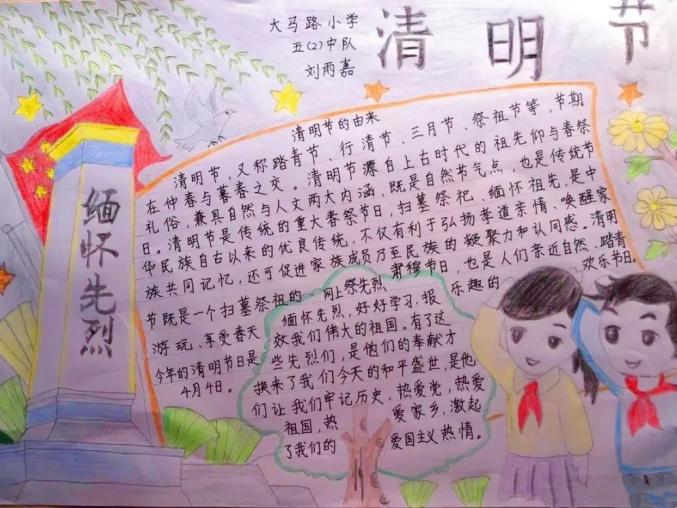 大马路小学
五(2)中队
刘雨嘉
清明节
缅怀先烈
清明节的由来
清明节,又称踏青节、行清节、三月节、祭祖节等,节期
在仲春与暮春之交。清明节源自上古时代的祖先仰与春祭
礼俗,兼具自然与人文两大内涵,既是自然节气点,也是传统节
日。清明节是传统的重大春祭节日,扫墓祭祀、缅怀祖先,是中
华民族自古以来的优良传统,不仅有利于弘扬孝道亲情、唤醒家
族共同记忆,还可促进家族成员乃至民族的凝聚力和认同感。清明
节既是一个扫墓祭祖的肃穆节日,也是人们亲近自然、踏青
游玩、享受春天乐趣的欢乐节日。
今年的清明节日是
4月4日。
网上祭先烈
缅怀先烈,好好学习,报
效我们伟大的祖国。有了这
些先烈们,是他们的奉献才
换来了我们今天的和平盛世,是他
们让我们牢记历史,热爱党,热爱
祖国,热爱家乡,激起
了我们的爱国主义热情。